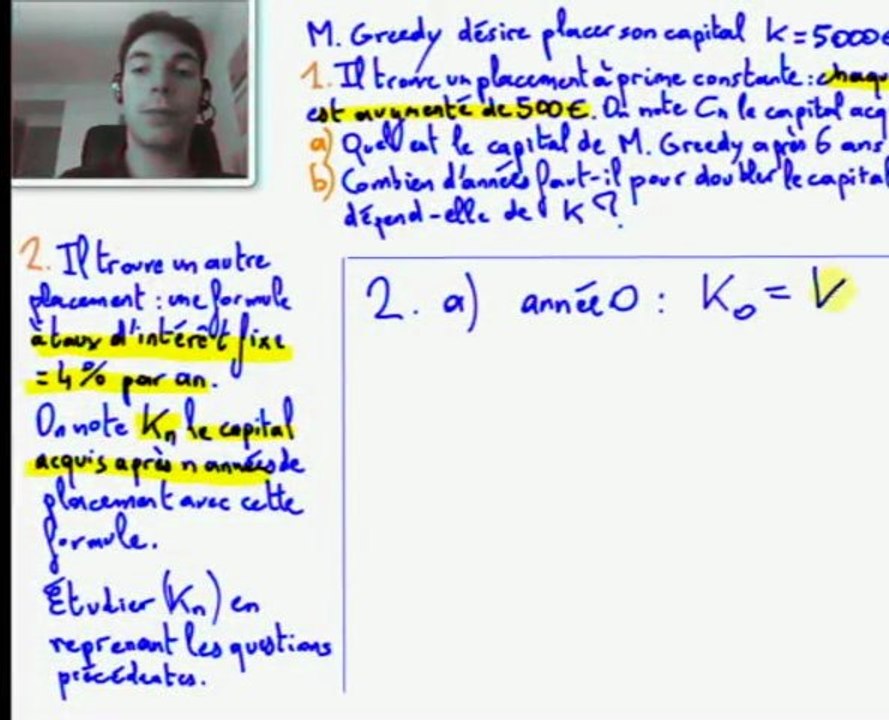 M. Greedy désire placer son capital K = 5000€
1. Il trouve un placement à prime constante : chaqu
est augmenté de 500 €. On note Cn le capital acq
a) Quel est le capital de M. Greedy après 6 ans
b) Combien d'années faut-il pour doubler le capital
dépend-elle de K ?
2. Il trouve un autre
placement : une formule
à taux d'intérêt fixe
= 4 % par an.
On note Kn le capital
acquis après n années de
placement avec cette
formule.
Étudier (Kn) en
reprenant les questions
précédentes.
2. a) année 0 : K0 = V